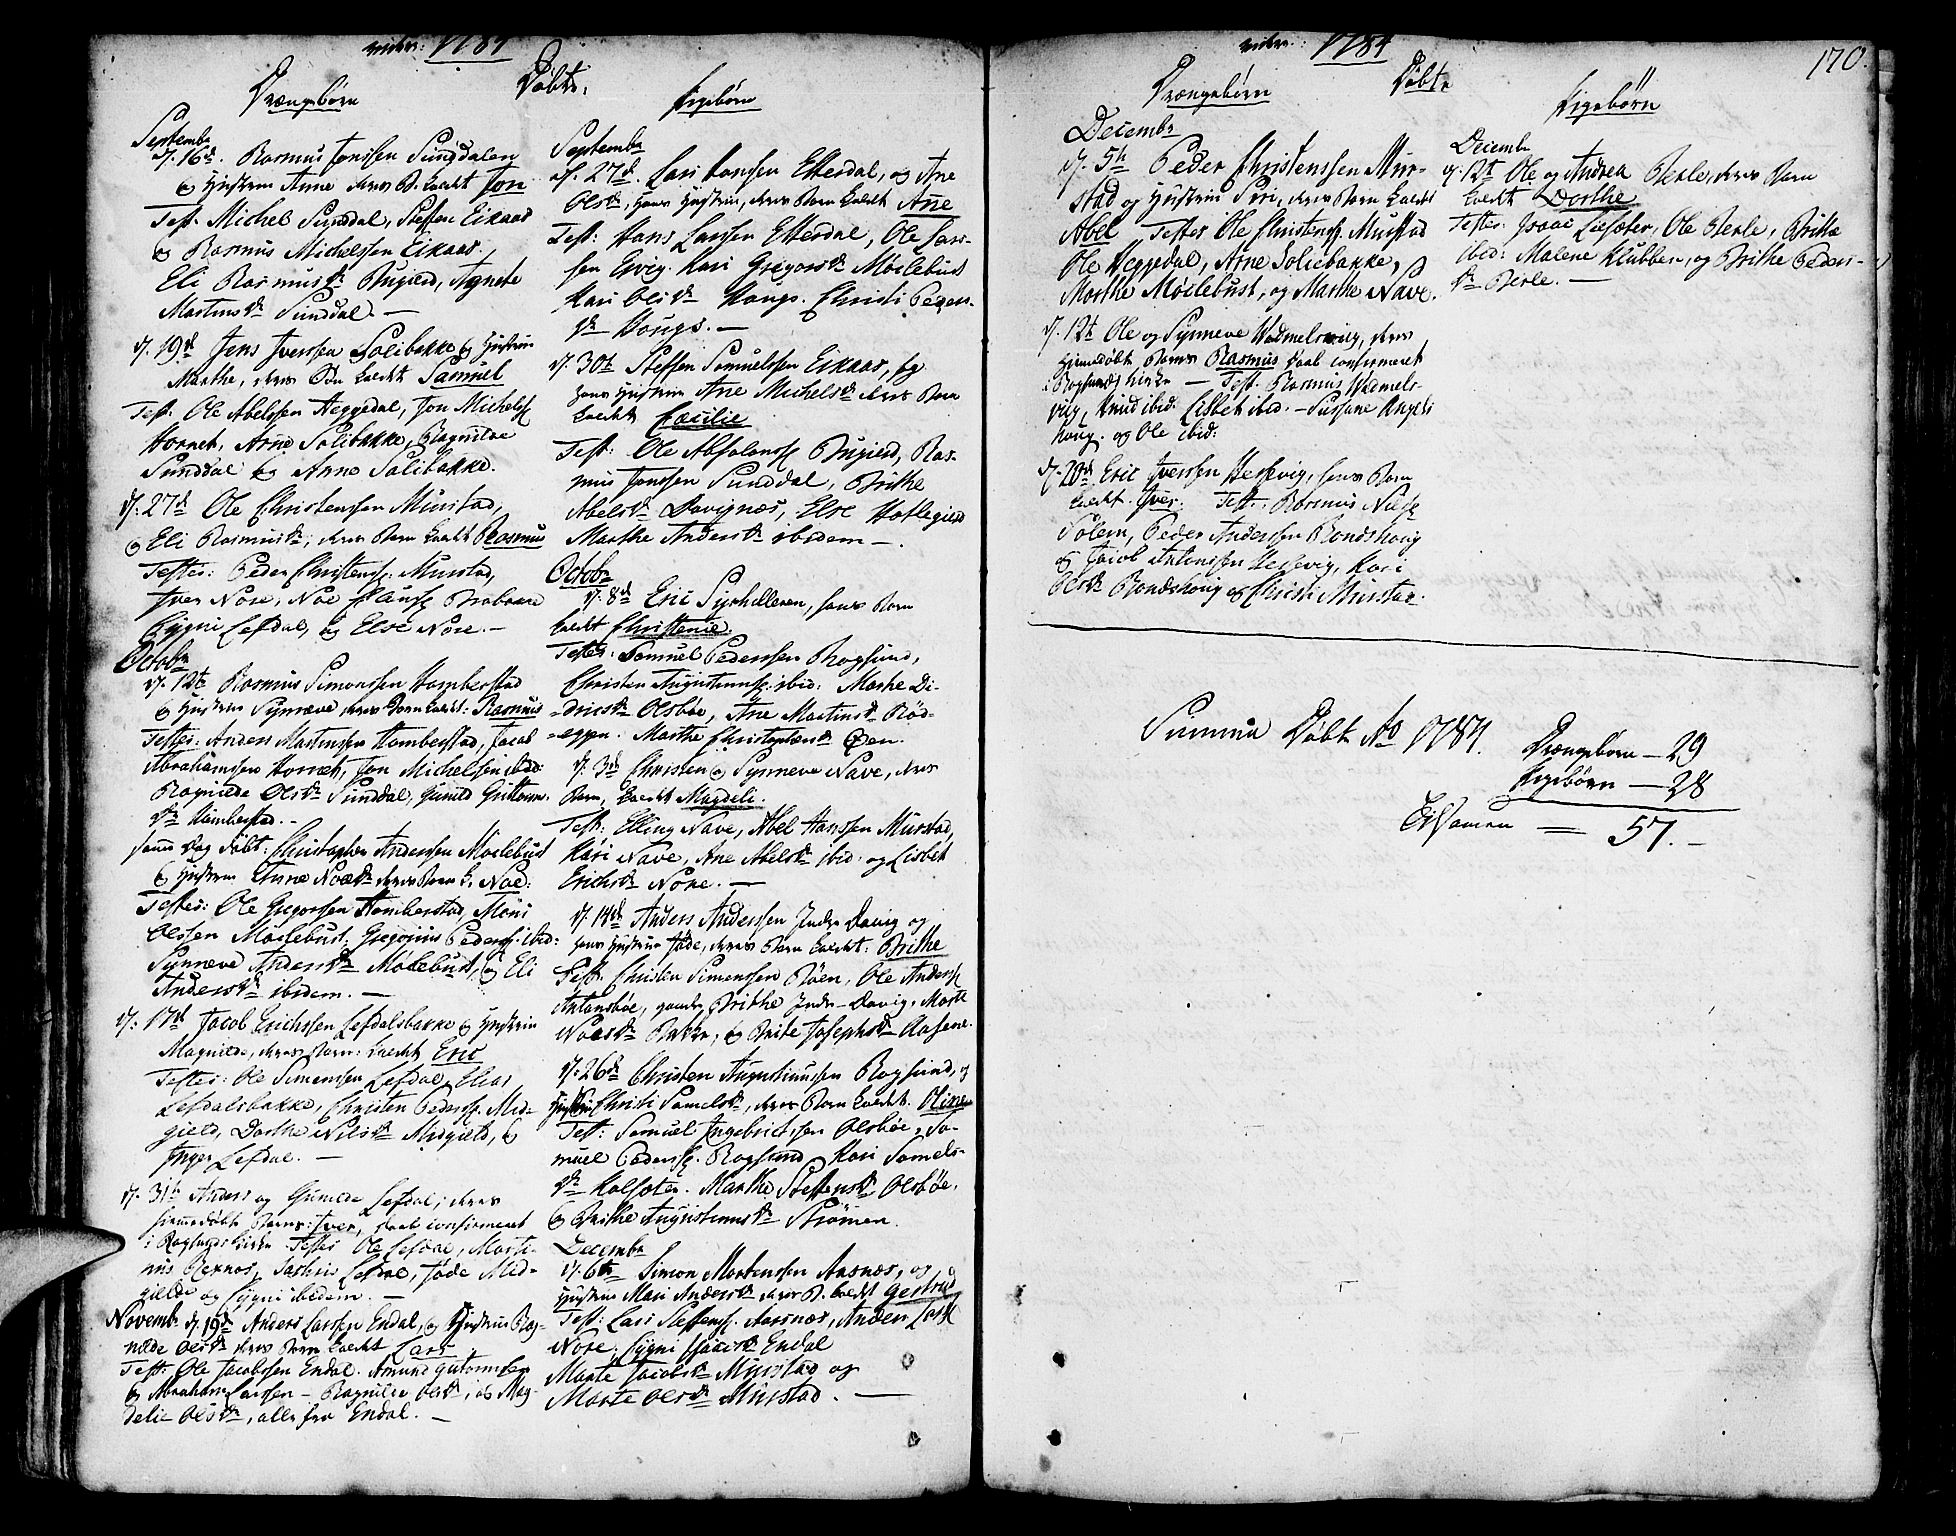 anno: 1784
Drængebørn
Døbte,
Pigebørn
Septembr
d. 16d. Rasmus Jonssen Sunddalen
og Hustrue Anne deres B. kaldt Jon
Test. Michel Sunddal, Steffen Eikaas
og Rasmus Michelssen Eikaas,
Eli Rasmusdr Brugied, Agnete
Martinsdr Sunddal. —
d. 19d Jens Iverssen Solibakke og Hustrue
Marthe, deres Bn kaldt Samuel
Test. Ole Abelssen Heggedal, Jon Michelss
Hornet, Arne Solibakke, Ragnilde
Sunddal og Anne Solibakke.
d. 27d Ole Christenssen Murstad,
og Eli Rasmusdr, deres Barn kaldt Rasmus
Testes: Peder Christenss. Murstad,
Iver Nore, Noe
Sygni Lefdal, og Else Nore. —
Octobr
d. 12te Rasmus Simonssen Homberstad
og Hustrue Synneve deres Barn kaldt: Rasmus
Testes: Anders Martenssen Homberstad, Jacob
Abrahamssen Hornet, Jon Michelssen ibid:
Ragnilde Olsdr Sunddal, Gunild Guttorms-
dr Homberstad. —
samme Dag døbt: Christopher Anderssen Møclebust
og Hustrue Anne Noedr deres Barn k. Noe:
Testes: Ole Gregorssen Homberstad, Mons
Olssen Møclebust, Gregorius Pederss. ibid:
Synneve Andersdr Møclebust, og Eli
Andersdr ibidem. —
d. 17d Jacob Erichssen Lefdalsbakke og Hustrue
Magnilde, deres Barn: kaldt Eric
Testes: Ole Simenssen Lefdal, Elias
Lefdalsbakke, Christen Pederss. Mid-
gield, Dorthe Nilsdr Midgield, og
Inger Lefdal. —
d. 31te Anders og Gunilde Lefdal, deres
hiemedøbt Barn: Iver, daab confirmeret
i Rogsunds Kirke Testes Ole Lefdal, Marti-
nus Rexnes, Lefdal, Jøde Mid-
gielde og Sygni ibidem. —
Novembr d. 19d Anders Larssen Endal, og Hustrue Rag-
nilde Olsdr deres Barn kaldt Lars
Test. Ole Jacobssen Endal. Amund Guttormssen
og Abraham Larssen — Ragnilde Olsdr, og Mag-
delie Olsdr, alle fra Endal. —
Septembr
d. 27d. Lars Hanssen Etterdal, og Ane
Olsdr, hans Hustrue, deres Barn kaldt Ane
Test: Hans Larssen Etterdal, Ole Lars-
sen Ervig. Kari Gregorsdr Møclebust
Kari Olsdr Hougs. Christi Peders-
dr Hougs. —
d. 30te Steffen Samuelssen Eikaas, og
hans Hustrue Ane Michelsdr deres Barn
kaldt Cecilie
Test: Ole Absalonss Brugied, Ras-
mus Jonssen Sunddal, Brithe
Abelsdr Davignes, Else Hoflegierd
Marthe Andersdr ibidem —.
Octobr
d. 8d Eric Syrhelleren, hans Barn
kaldt Christense.
Testes: Samuel Pederssen Rogsund,
Christen Augustinuss. ibid: Marthe Di-
dricsdr Olsbøe, Ane Martinsdr Rød-
eggen. Marthe Christophersdr Øen.
d. 3d Christen og Synneve Nave, deres
Barn, kaldt Magdeli.
Test: Elling Nave, Abel Hanssen Murstad,
Kari Nave, Ane Abelsdr ibid: og Lisbet
Erichsdr Nore. —
d. 14d Anders Anderssen Indre Davig og
hans Hustrue Jøde, deres Barn kaldt: Brithe
Test. Christen Simenssen Røen, Ole Anderss
Antonsbøe, Brithe Indre-Davig, Marte
Noesdr Bakke, og Brite Josephsdr Aasene.
d. 26d Christen Augustinussen Rogsund, og
Hustrue Christi Samelsdr, deres Barn kaldt. Oline
Test: Samuel Ingebrictssen Olsbøe, Sa-
muel Pederss. Rogsund, Kari Samels-
dr Kalsæter. Marthe Steffensdr Olsbøe,
og Brithe Augustinusdr Strømen.
Decembr
d. 6te Simon Mortenssen Aasnæs, og
Hustrue Mari Andersdr deres B. kaldt Gertrud
Test: Lars Steffenss. Aasnæs, Anders Larss
Nore, Sygni Endal
Marte Jacobsdr Murstad og
Marte Olsdr Murstad. —
anno: 1784
170.
Drængebørn
Døbte
Pigebørn
Decembr
d. 5te Peder Christenssen Mur-
stad og Hustrue Siri, deres Barn kaldt
Abel Testes Ole Christenss. Murstad
Ole Heggedal, Arne Solibakke,
Marthe Møclebust, og Marthe Nave.
d. 12te Ole og Synneve Hadmelsvig, deres
hiemedøbt Barns Rasmus daab confirmeret
i Rogsunds Kirke — Test. Rasmus Hadmels-
vig, Knud ibid. Lisbet ibid. — Susane Angels
houg. og Ole ibid:
d. 20d Eric Iverssen Hessevig, hans Barn
kaldt. Iver. Test. Rasmus Nilss
Solem, Peder Anderssen Rondshoug
og Jacob Antonssen Hessevig, Kari
Olsdr Rondshoug og Christi Murstad.
Decembr
d. 12te Ole og Andrea Berle, deres Barn
kaldt Dorthe
Testes: Isaac Liesæter, Ole Berle, Brithe
ibid: Malene Klubben, og Brithe Peders-
dr Berle. —
Summa Døbt Ao 1784. Drængebørn — 29
Pigebørn — 28
57. —